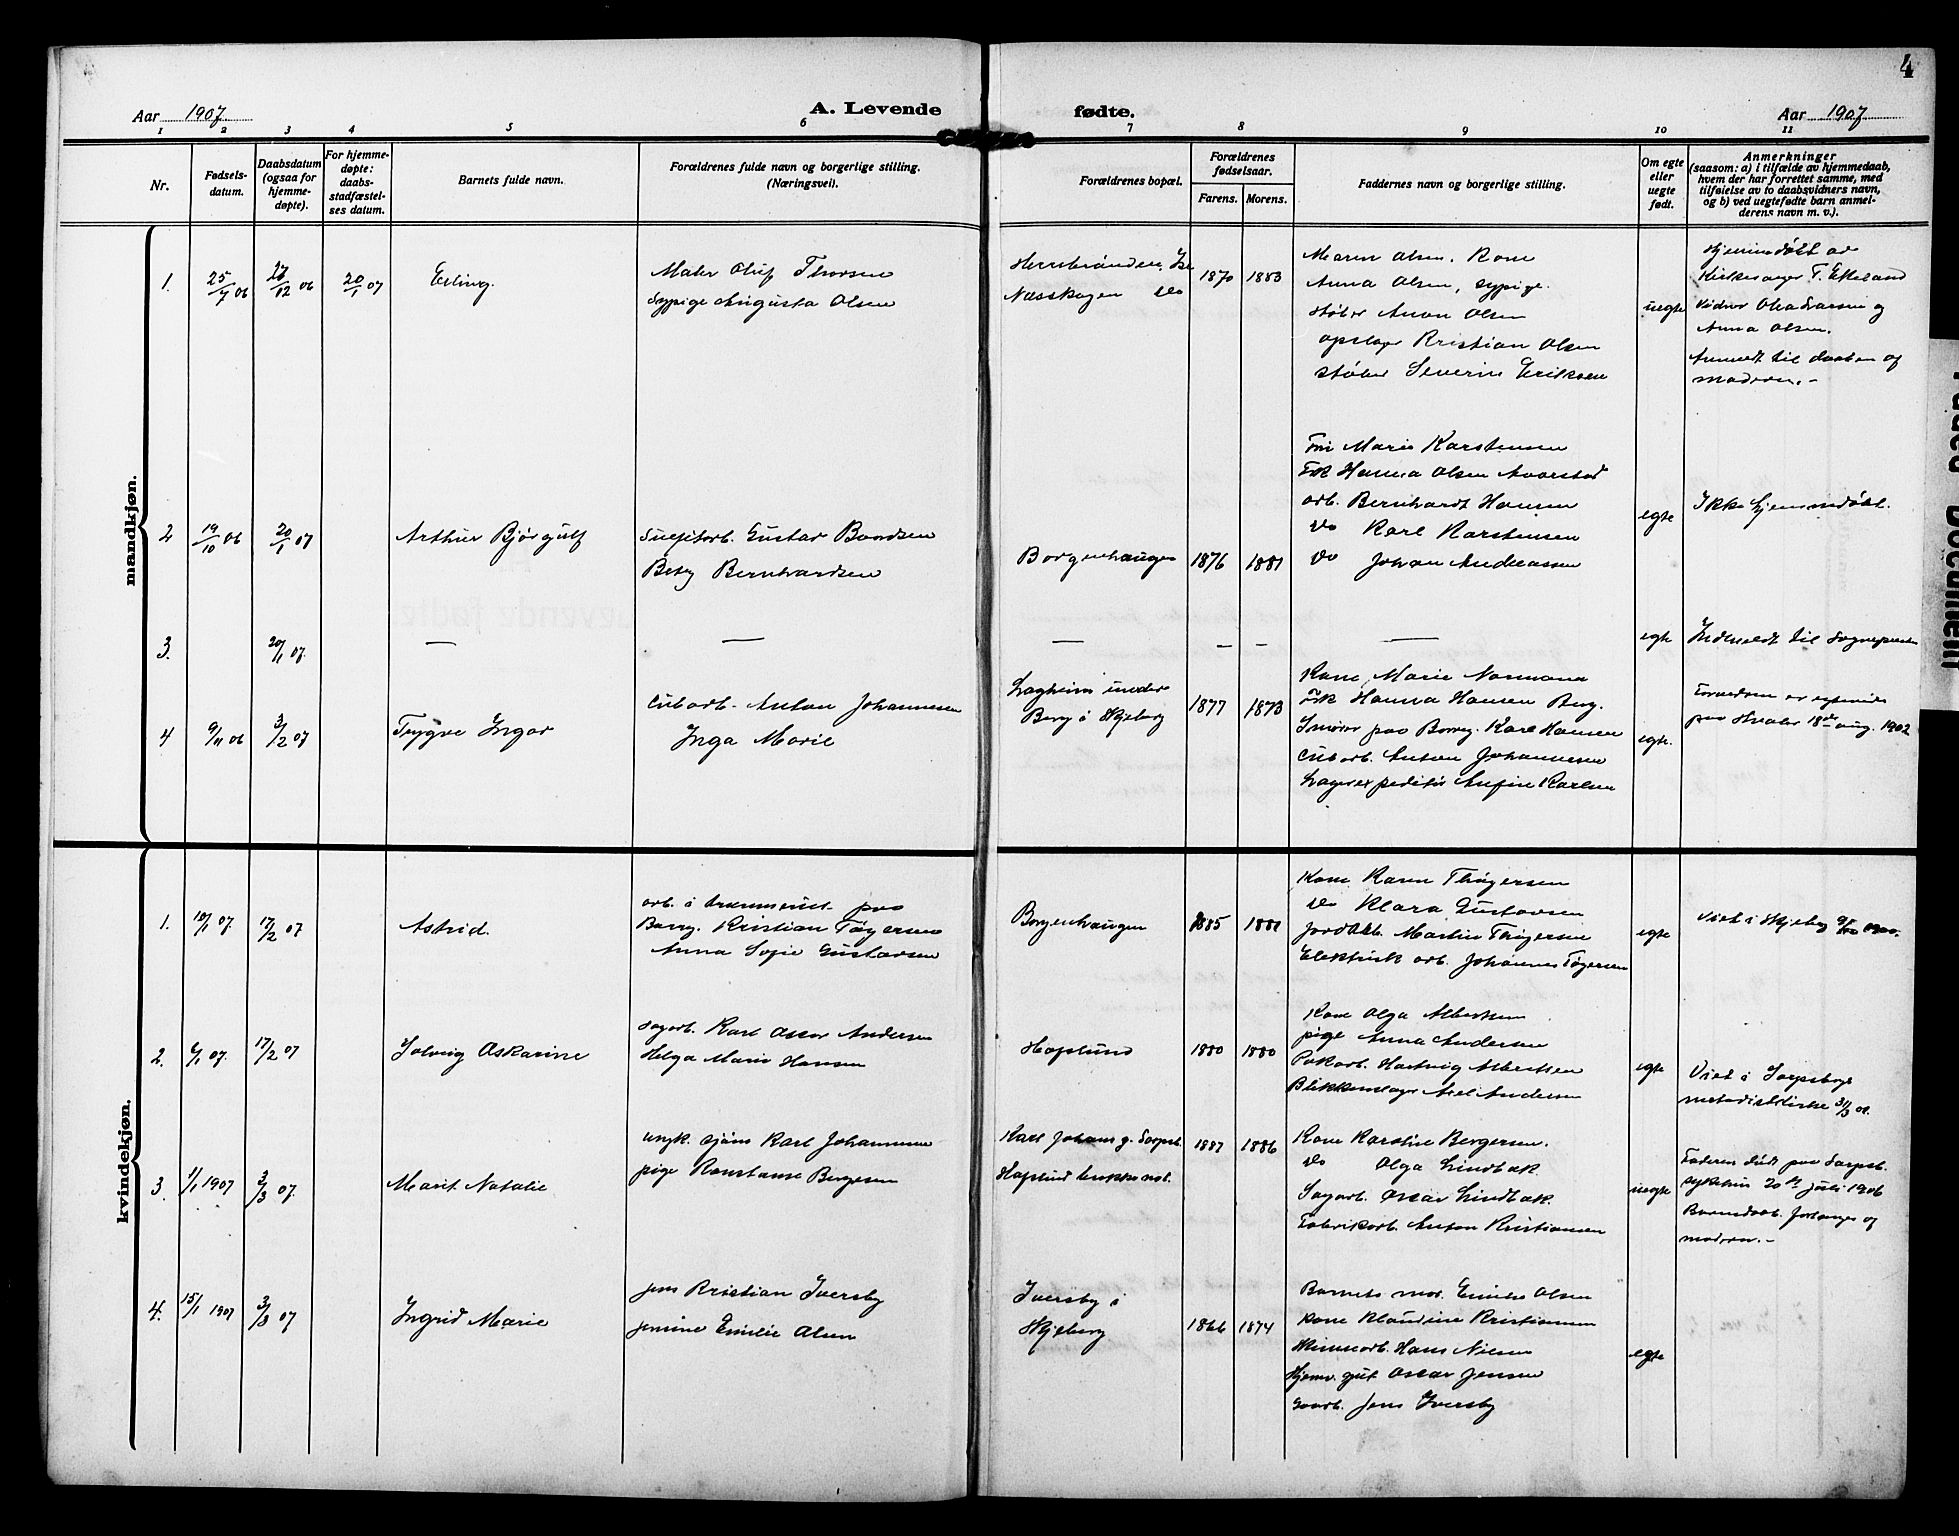 4
Aar 1907
A. Levende fødte.
Aar 1907
1 2 3 4 5 6 7 8 9 10 11
Nr.
Fødsels-
datum.
Daabsdatum
(ogsaa for
hjemme-
døpte).
For hjemme-
døpte:
daabs-
stadfæstel-
ses datum.
Barnets fulde navn.
Forældrenes fulde navn og borgerlige stilling.
(Næringsvei).
Forældrenes bopæl.
Forældrenes
fødselsaar.
Farens. Morens.
Faddernes navn og borgerlige stilling.
Om egte
eller
uegte
født.
Anmerkninger
(saasom: a) i tilfælde av hjemmedaab,
hvem der har forrettet samme, med
tilføielse av to daabsvidners navn,
og b) ved uegtefødte barn anmel-
derens navn m. v.).
mandkjøn.
1. 25/7 06 27/12 06 20/1 07 Erling.
Maler Oluf Thorsen
Sypige Augusta Olsen
Næsskogen do
1870 1883
Maren Olsen, Kone
Anna Olsen, sypige.
støber Anton Olsen
Kristian Olsen
støber Severin Eriksen
uegte
Hjemmedøbt av
Kirkesanger T. Etteland
Vidner Olea Larsen og
Anna Olsen.
Anmeldt til daaben af
moderen.-
2 19/10 06 20/1 07 Arthur Bjørgulf
Sulfitarb. Gustav Bondsen
Betzy Bernhardsen
Borgenhaugen 1876 1881
Marie Karstensen
Frk Hanna Olsen Aaorstad
arb. Bernhardt Hansen
do Karl Karstensen
do Johan Andreassen
egte
Ikke hjemmedøbt.
3. 20/1 07. — — — — — — egte Indmeldt til Sogneprsten
4 9/11 06 3/2 07 Trygve Ingar
Cub arb. Anton Johannesen
Inga Marie
Lagheim under
Borg i Skjeberg
1877 1873
Kone Marie Normann
Frk Hanna Hansen Berg.
Smører paa Borreg. Karl Hansen
Cub arb. Anton Johannesen
Lagerexpeditør Anfin Karlsen
egte.
paa Hvaler 18de aug. 1902
kvindekjøn.
1. 10/1 07. 17/2 07 Astrid.
arb. i tømmeriet paa
Borrg. Kristian Tøgersen
Anna Sofie Gustavsen
Borgenhaugen 1885 1881
Kone Karen Thøgersen
do Klara Gustavsen
Jordarb. Martin Thøgersen
Elektrisk arb. Johannes Tøgersen
egte
Viet i Skjeberg
2. 6/1 07. 17/2 07 Solveig Oskarine
Sagarb. Karl Oscar Andersen
Helga Marie Hansen
Hafslund 1880 1880
Kone Olga Albertsen
pige Anna Andersen
Pakarb. Hartvig Albertsen
Blikkenslager Axel Andersen
egte
Viet i Sarpsborg
metodistkirke 31/3 01.
3. 1/1 1907 3/3 07. Marit Natalie
ungk. sjøm Karl Johannesen
pige Konstanse Bergersen
Karl Johans g. Sarpsb.
Hafslund brukkenot.
1887 1886
Kone Karoline Bergersen.
do Olga Lindbæk
Sagarb. Oscar Lindbæk.
Fabrikarb. Anton Kristiansen
uegte
Faderen død paa Sarpsb.
sykehus 20de juli 1906
Barnedaab. forlanges af
moderen.-
4. 15/1 1907 3/3 07 Ingrid Marie
Jens Kristian Iversby
Jensine Emilie Olsen
Iversby i
Skjeberg
1866 1874
Barnets mor. Emilie Olsen
Kone Klaudine Kristiansen
Hans Nilsen
Hjemv. gut Oscar Jensen
Gaarb. Jens Iversby
egte